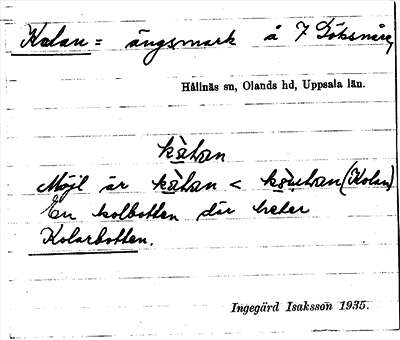 Kolan = ängsmark å 7 Göksnåre,
Hållnäs sn, Olands hd, Uppsala län.
Möjl är < (Kolan)
En kolbotten där heter
Kolarbotten.
Ingegärd Isaksson 1935.